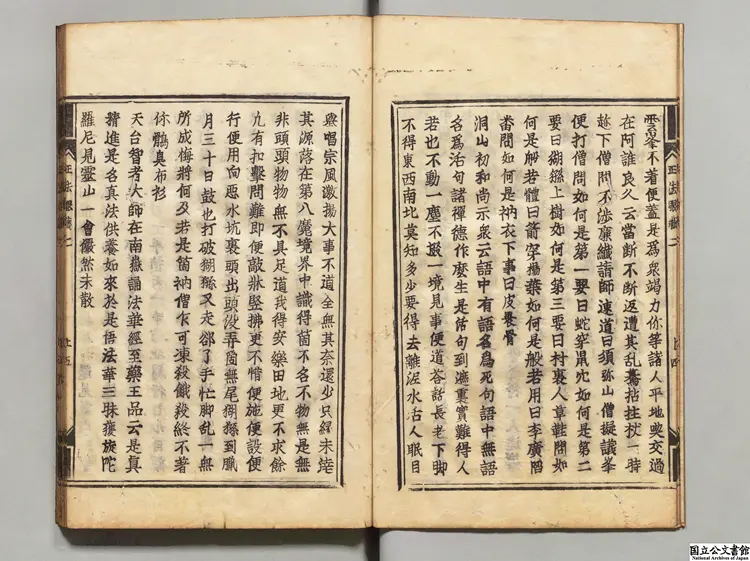 雲峯不著便蓋是爲衆竭力你等諸人平地喫交過
在阿誰良久云當斷不斷返遭其乱驀拈拄杖一時
趂下僧問不渉廉纎請師速道曰須弥山僧擬議峯
便打僧問如何是第一要曰蛇穿鼠穴如何是第二
要曰猢猻上樹如何是第三要曰村裏人草鞋問如
何是般若體曰箭穿楊葉如何是般若用曰李廣
番問如何是衲衣下事曰皮裹骨
洞山初和尚示衆云語中有語名爲死句語中無語
名爲活句諸禪德作麼生是活句到遮裏實難得人
若也不動一塵不撥一境見事便道答話長老下脚
不得東西南北莫知多少要得去離泥水古人眼目
正法眼藏二
上四
與唱宗風激揚大事不道全無其奈還少只緣未達
其源落在第八魔境界中識得箇不名不物無是無
非頭頭物物無不具足道我得安樂田地更不求餘
凢有扣擊問難即便敲牀竪拂更不惜便施便設便
行便用向惡水坑裹頭出頭没弄箇無尾猢猻到臘
月三十日鼓也打破猢猻又走郤了手忙脚乱一無
所成悔將何及若是箇衲僧乍可凍殺餓殺終不著
你鶻臭布衫
天台智者大師在南嶽誦法華經至藥王品云是真
精進是名真法供養如來於是悟法華三昧獲旋陀
羅尼見靈山一會儼然未散
正法眼藏二
上五
国立公文書館
National Archives of Japan